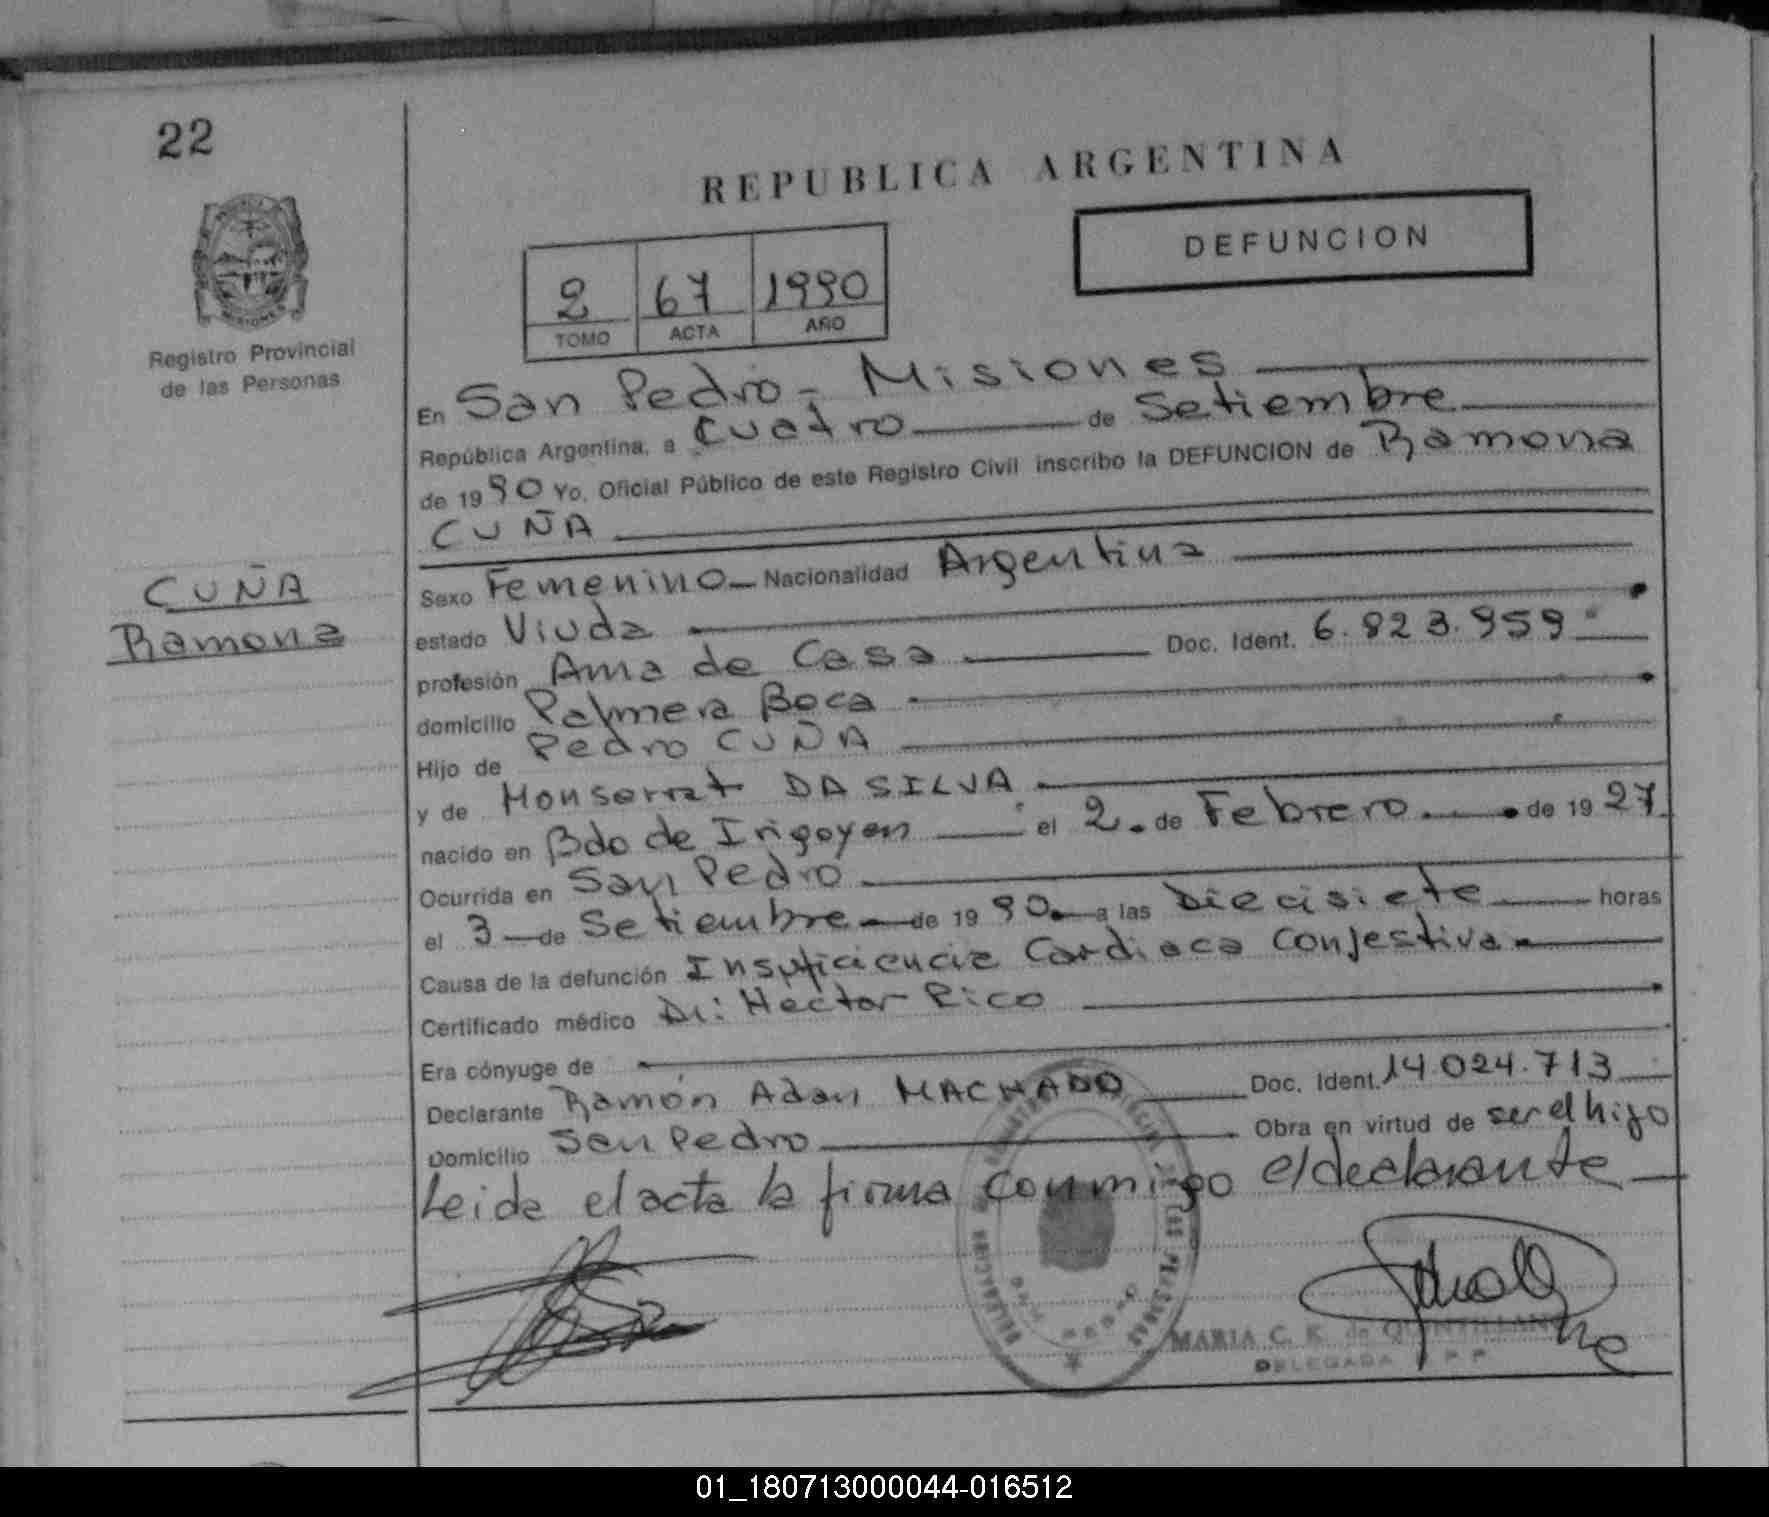 22
REPUBLICA ARGENTINA
DEFUNCION
2 67 1990
TOMO ACTA AÑO
MISIONES
Registro Provincial
de las Personas
En San Pedro - Misiones
República Argentina, a Cuatro de Setiembre
de 1990 Yo, Oficial Público de este Registro Civil inscribo la DEFUNCION de Ramona
CUÑA
CUÑA
Ramona
Sexo Femenino Nacionalidad Argentina
estado Viuda
profesión Ama de Casa Doc. Ident. 6.823.959
domicilio Palmera Boca
Hijo de Pedro CUÑA
y de Monserrat DA SILVA
nacido en Bdo de Irigoyen el 2 de Febrero de 1927
Ocurrida en San Pedro
el 3 de Setiembre de 1990 a las Diecisiete horas
Causa de la defunción Insuficiencia Cardiaca Conjestiva
Certificado médico Dr: Hector Rico
Era cónyuge de
Declarante Ramón Adan MACHADO Doc. Ident. 14.024.713
Domicilio San Pedro Obra en virtud de ser el hijo
Leida el acta la firma conmigo el declarante
MARIA C. K. de QUINTILLAN
DELEGADA
01_180713000044-016512